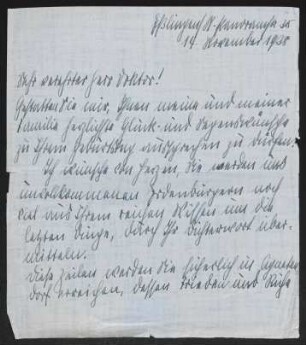 Eßlingen a/N. Panoramastr.
14. November 1938
Sehr verehrter Herr Doktor!
Gestatten Sie mir, Ihnen meine und meiner
Familie herzlichste Glück- und Segenswünsche
zu Ihrem Geburtstag aussprechen zu dürfen.
Ich wünsche von Herzen, Sie werden uns
unvollkommenen Erdenbürgern noch
viel aus Ihrem reichen Wissen um die
letzten Dinge, durch Ihr Dichterwort über-
mitteln.
Diese Zeilen werden Sie sicherlich in Agneten-
dorf erreichen, dessen Frieden und Ruhe